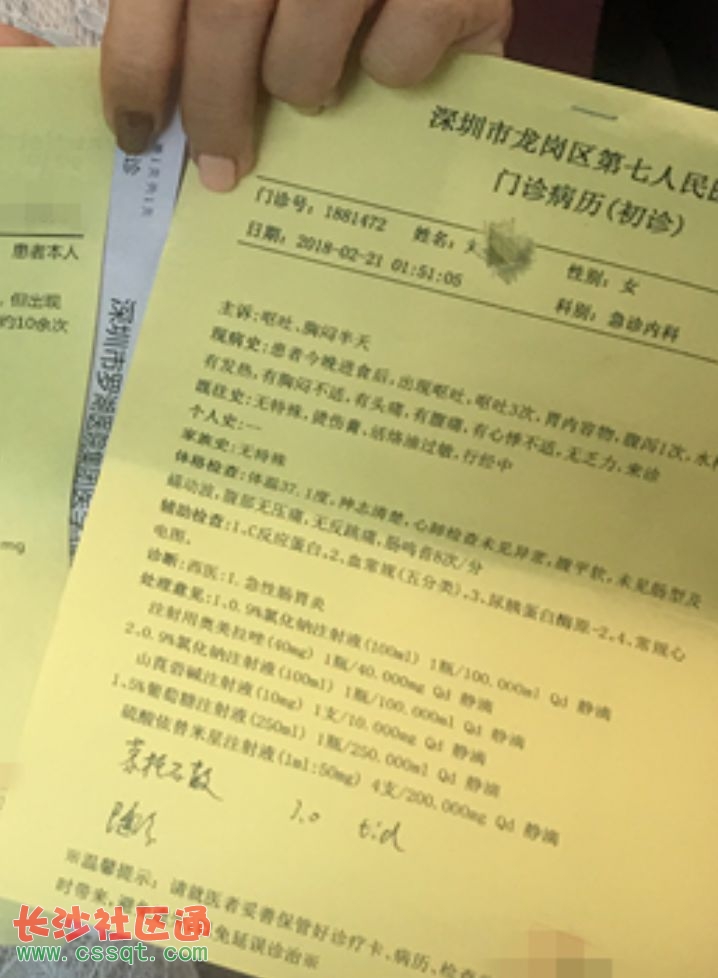 患者本人
但出现
约10余次
mg
深圳市罗湖医院集团医
深圳市龙岗区第七人民医
门诊病历(初诊)
门诊号: 1881472 姓名: 性别: 女
日期: 2018-02-21 01:51:05 科别: 急诊内科
主诉:呕吐,胸闷半天
现病史:患者今晚进食后,出现呕吐,呕吐3次,胃内容物,腹泻1次,水样
有发热,有胸闷不适,有头痛,有腹痛,有心悸不适,无乏力,来诊
既往史:无特殊,烫伤膏,活络油过敏,行经中
个人史:一
家族史:无特殊
体格检查:体温37.1度,神志清楚,心肺检查未见异常,腹平软,未见肠型及
蠕动波,腹部无压痛,无反跳痛,肠鸣音8次/分
辅助检查:1、C反应蛋白,2、血常规(五分类),3、尿胰蛋白酶原-2,4、常规心
电图,
诊断:西医:1.急性肠胃炎
处理意见:1、0.9%氯化钠注射液(100ml) 1瓶/100.000ml Qd 静滴
注射用奥美拉唑(40mg) 1瓶/40.000mg Qd 静滴
2、0.9%氯化钠注射液(100ml) 1瓶/100.000ml Qd 静滴
山莨菪碱注射液(10mg) 1支/10.000mg Qd 静滴
1、5%葡萄糖注射液(250ml) 1瓶/250.000ml Qd 静滴
硫酸依替米星注射液(1ml:50mg) 4支/200.000mg Qd 静滴
蒙托石散 tid
随诊
※温馨提示: 请就医者妥善保管好诊疗卡、病历、检查
时带来,避免 免延误诊治※
长沙社区通
www.cssqt.com